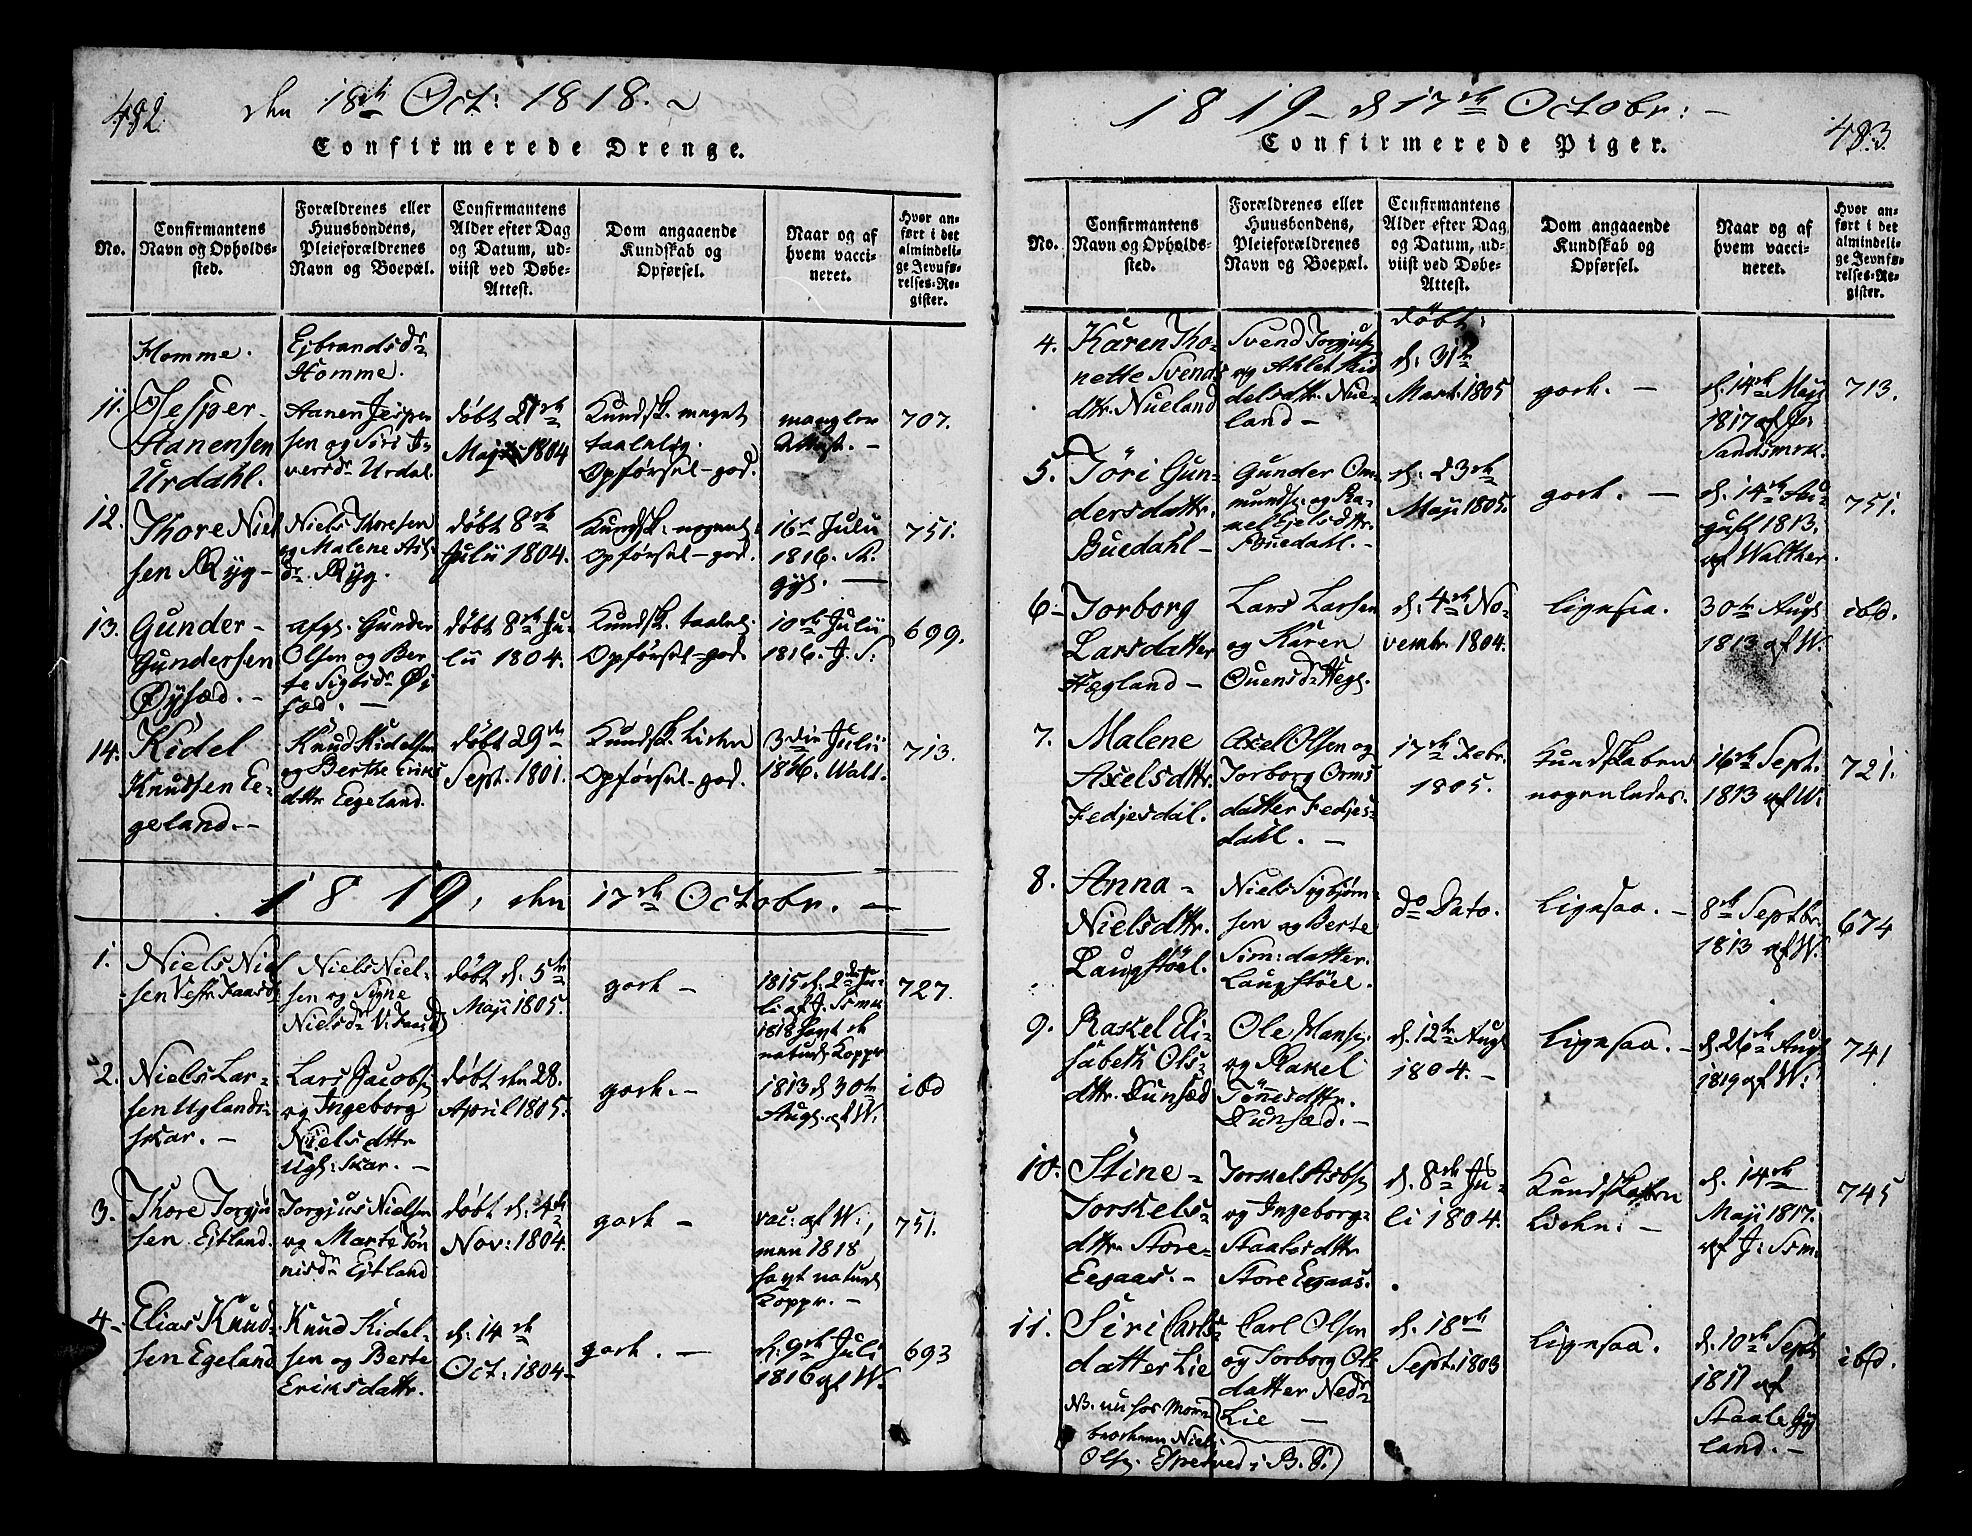 482.
den 18de Oct: 1818.
Confirmerede Drenge.
No.
Confirmantens
Navn og Opholds-
sted.
Forældrenes eller
Huusbondens,
Pleieforældrenes
Navn og Boepæl.
Confirmantens
Alder efter Dag
og Datum, ud-
viist ved Døbe-
Attest.
Dom angaaende
Kundskab og
Opførsel.
Naar og af
hvem vacci-
neret.
Hvor an-
ført i det
almindeli-
ge Jevnfø-
relses-Re-
gister.
Homme.
Ejbrandsdr
Homme.
11.
Jesper
Aanensen
Urdahl.
Aanen Jespen
sen og Siri I-
versdr Urdal.
døbt 21de
Maji 1804
Kundsk. meget
taalelig.
Opførsel-god.
mangler
Attest. -
707.
12.
Thore Niel
sen Ryg-
Niels Thoresen
og Malene Asl
dr. Ryg.
døbt 8de
Julii 1804.
Kundsk. nogenl:
Opførsel-god.
16de Julii
1816. St.
gyl. -
751.
13.
Gunder -
Gundersen
Øysæd. -
afg. Gunder
Olsen og Ber
te Siglidr Øi
sæd. -
døbt 8de Ju-
lii 1804.
Kundsk. taalel:
Opførsel-god.
10de Julii
1816. J. S:
699.
14.
Kidel
Knudsen Ee-
geland. -
Knud Kidelsen
og Berthe Eriks
dttr Eegeland.
døbt 29de
Sept. 1801.
Kundsk. liden
Opførsel-god.
3die Julii
1816. Walt.
713.
1819, den 17de Octobr. -
1.
Niels Niel
sen Vestr Faasd
Niels Niel-
sen og Signe
Nielsdr V: Faasd
døbt d. 5te
Maji 1805.
godt -
1815 d. 2den Ju-
li af J. Ssmrk
1818 havt de
naturl. Kopper
727.
2.
Niels Lar-
sen Uglands-
skar. -
Lars Jacobs.
og Ingeborg
Nielsdttr
Ugl: skar. -
døbt den 28.
April 1805.
godt. -
1813 d. 30te
Aug. af W.
ibd
3.
Thore Torgju
sen Ejtland.
Torgjus Nielsen
og Marte Tøn
nisdr Ejtland
døbt d: 4de
Nov: 1804.
godt -
vac: af W:,
men 1818
havt naturl
Kopper. -
751.
4-
Elias Knud-
sen Egeland
Knud Kidel-
sen og Berte
Eriksdattr.
d. 14de
Oct. 1804-
godt. -
d. 9de Juli
1816 af W.
693
1819 - d 17de Octobr: -
Confirmerede Piger.
483.
No.
Confirmantens
Navn og Opholds-
sted.
Forældrenes eller
Huusbondens,
Pleieforældrenes
Navn og Boepæl.
Confirmantens
Alder efter Dag
og Datum, ud-
viist ved Døbe-
Attest.
Dom angaaende
Kundskab og
Opførsel.
Naar og af
hvem vacci-
neret.
Hvor an-
ført i det
almindeli-
ge Jevnfø-
relses-Re-
gister.
4.
Karen Tho-
nette Svends
dtr. Nueland
Svend Torgjus
og Ahlet Kid
delsdttr. Nue-
land -
døbt:
d: 31te
Mart. 1805
godt. -
d. 14de Maji
1817 af J:
Sandsmrk.
713.
5.
Töri Gun-
dersdattr.
Buedahl -
Gunder Om-
munds. og Ra-
nel Ejelsdttr.
Buedahl. -
d. 23de
Maji 1805.
godt. -
d. 14de Au-
gust 1813.
af Walther.
751.
6-
Torborg
Larsdatter
Hægland -
Lars Larsen
og Karen
Ouensdr Hegl.
d. 4de No-
vembr 1804.
ligesaa.
30te Augs
1813 af W.
ibd.
7.
Malene
Axelsdttr.
Fedjesdal.
Axel Olsen og
Torborg Orms
datter Fedjes-
dahl. -
17de Febr.
1805.
Kundskaben
nogenledes.
16de Sept.
1813 af W:
721.
8.
Anna -
Nielsdttr.
Laugstöel.
Niels Sigbjørn-
sen og Berte
Sim: datter.
Laugstöel.
do Dato.
Ligesaa. -
8de Septbr.
1813 af W.
674
9.
Rakel Eli-
sabeth Ols-
dttr. Dunsæd
Ole Hans.
og Rakel
Tönesdttr.
Dunsæd. -
d. 12te Aug
1804. -
Ligesaa. -
d. 26de Aug
1819 af W:
741
10.
Stine -
Torkels-
dttr. Store-
Eegaas. -
Torkel Asbs.
og Ingeborg
Staalesdttr
Store Eegaas.
d. 8de Ju-
li 1804.
Kundskaben
liden: -
d. 14de
Maji 1817.
af J: Ssm.
745
11.
Siri Carls-
datter Lie
Carl Olsen
og Torborg Ols
datter Nedr
Lie -
d. 18de
Sept. 1803
Ligesaa.
d. 10de Sept
1817 af
Staale Gy
land. -
ibd.
NB. nu hos Mor-
broderen Niels
Ols. Espetved i B. S.)